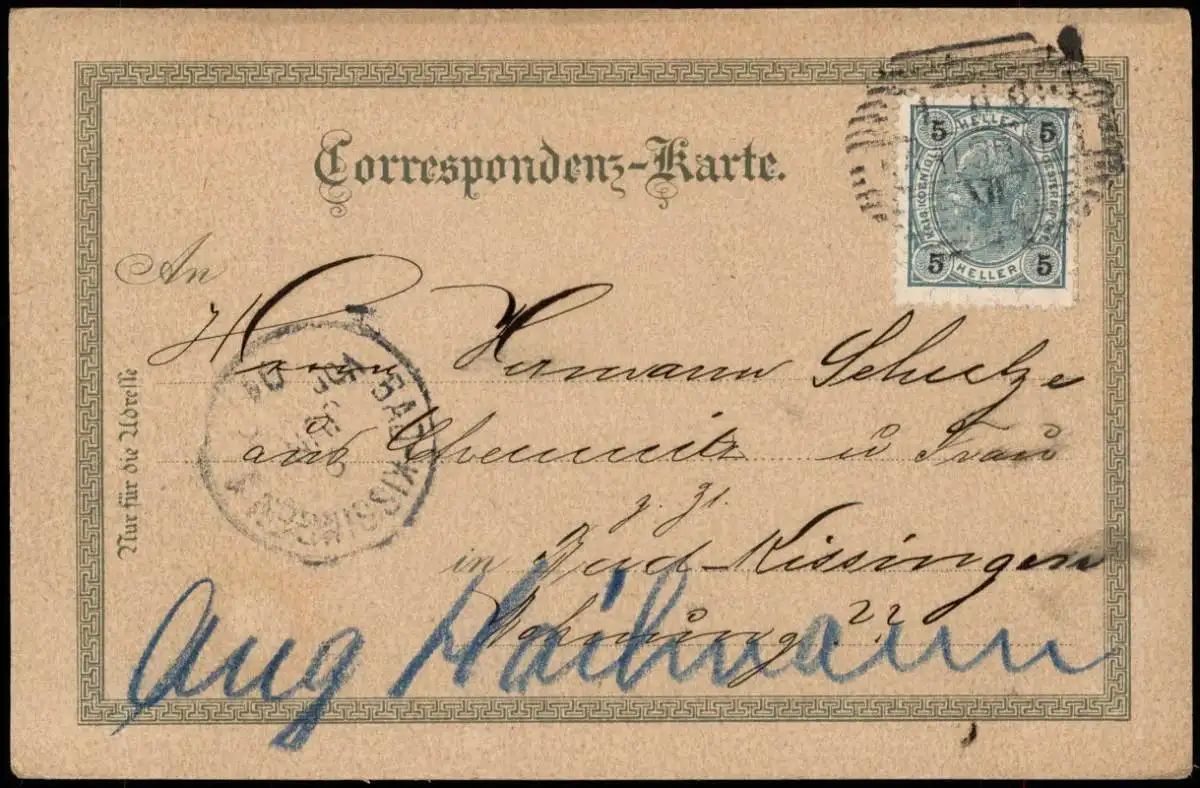 Correspondenz-Karte.
5 HELLER 5
5 HELLER 5
An
Herrn Hermann Schulze
aus Chemnitz u Frau
z. Zt.
in Bad-Kissingen
Wohnung ??
Nur für die Adresse
BAD KISSINGEN
VII
Aug